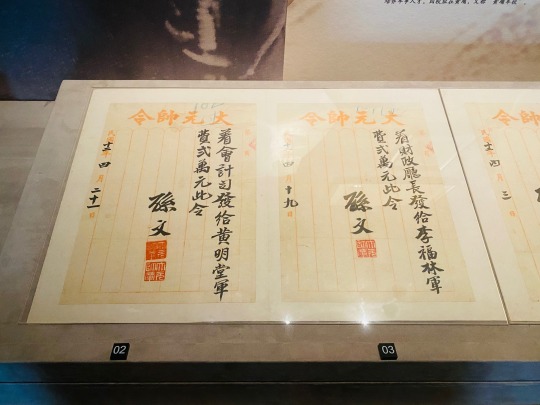 大元帥令
着會計司發給黃明堂軍
費弍萬元此令
孫文
十二年四月二十一日
大元帥令
着財政廳長發給李福林軍
費弍萬元此令
孫文
十二年四月十九日
帥令
十二年四月三日
02
03